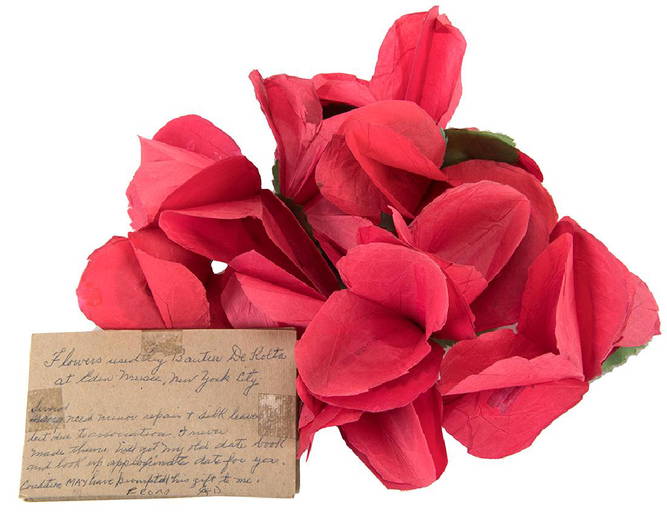 Flowers used by Bautier De Kolta
at Eden Musee, New York City
need minor repair + silk leaves
but due to association I never
made them. Will get my old date book
and look up appropriate date for you.
Conditive MAY have prompted his gift to me.